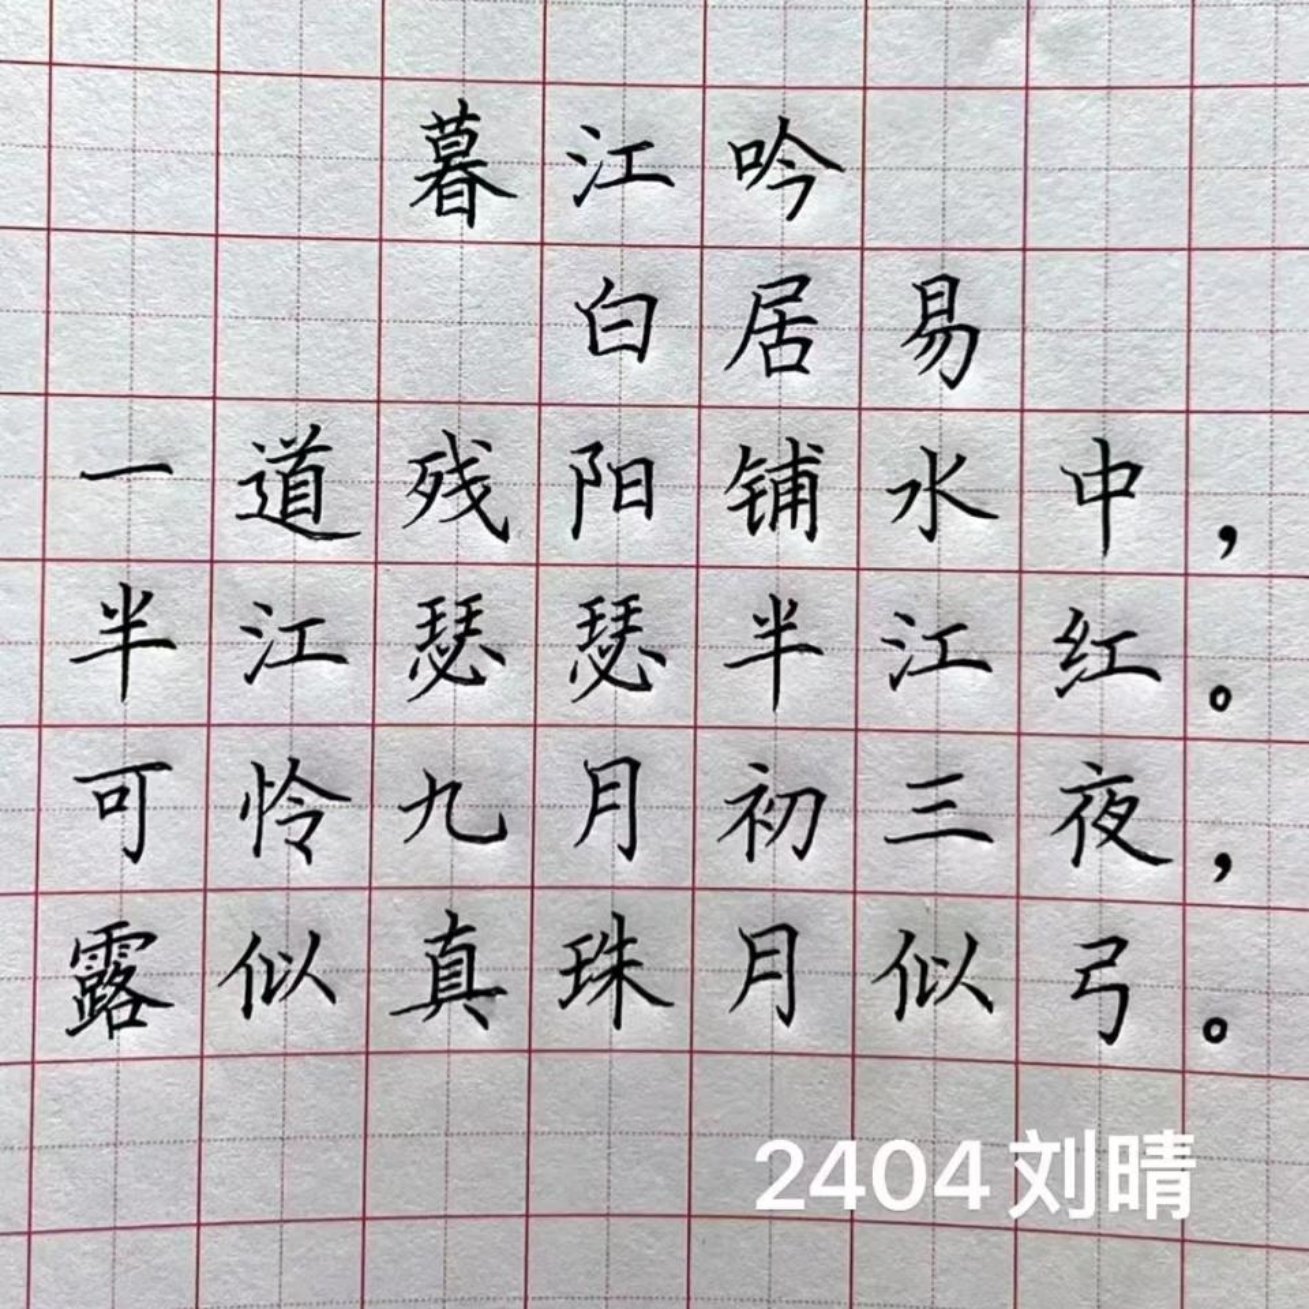 暮江吟
白居易
一道残阳铺水中，
半江瑟瑟半江红。
可怜九月初三夜，
露似真珠月似弓。
2404刘晴